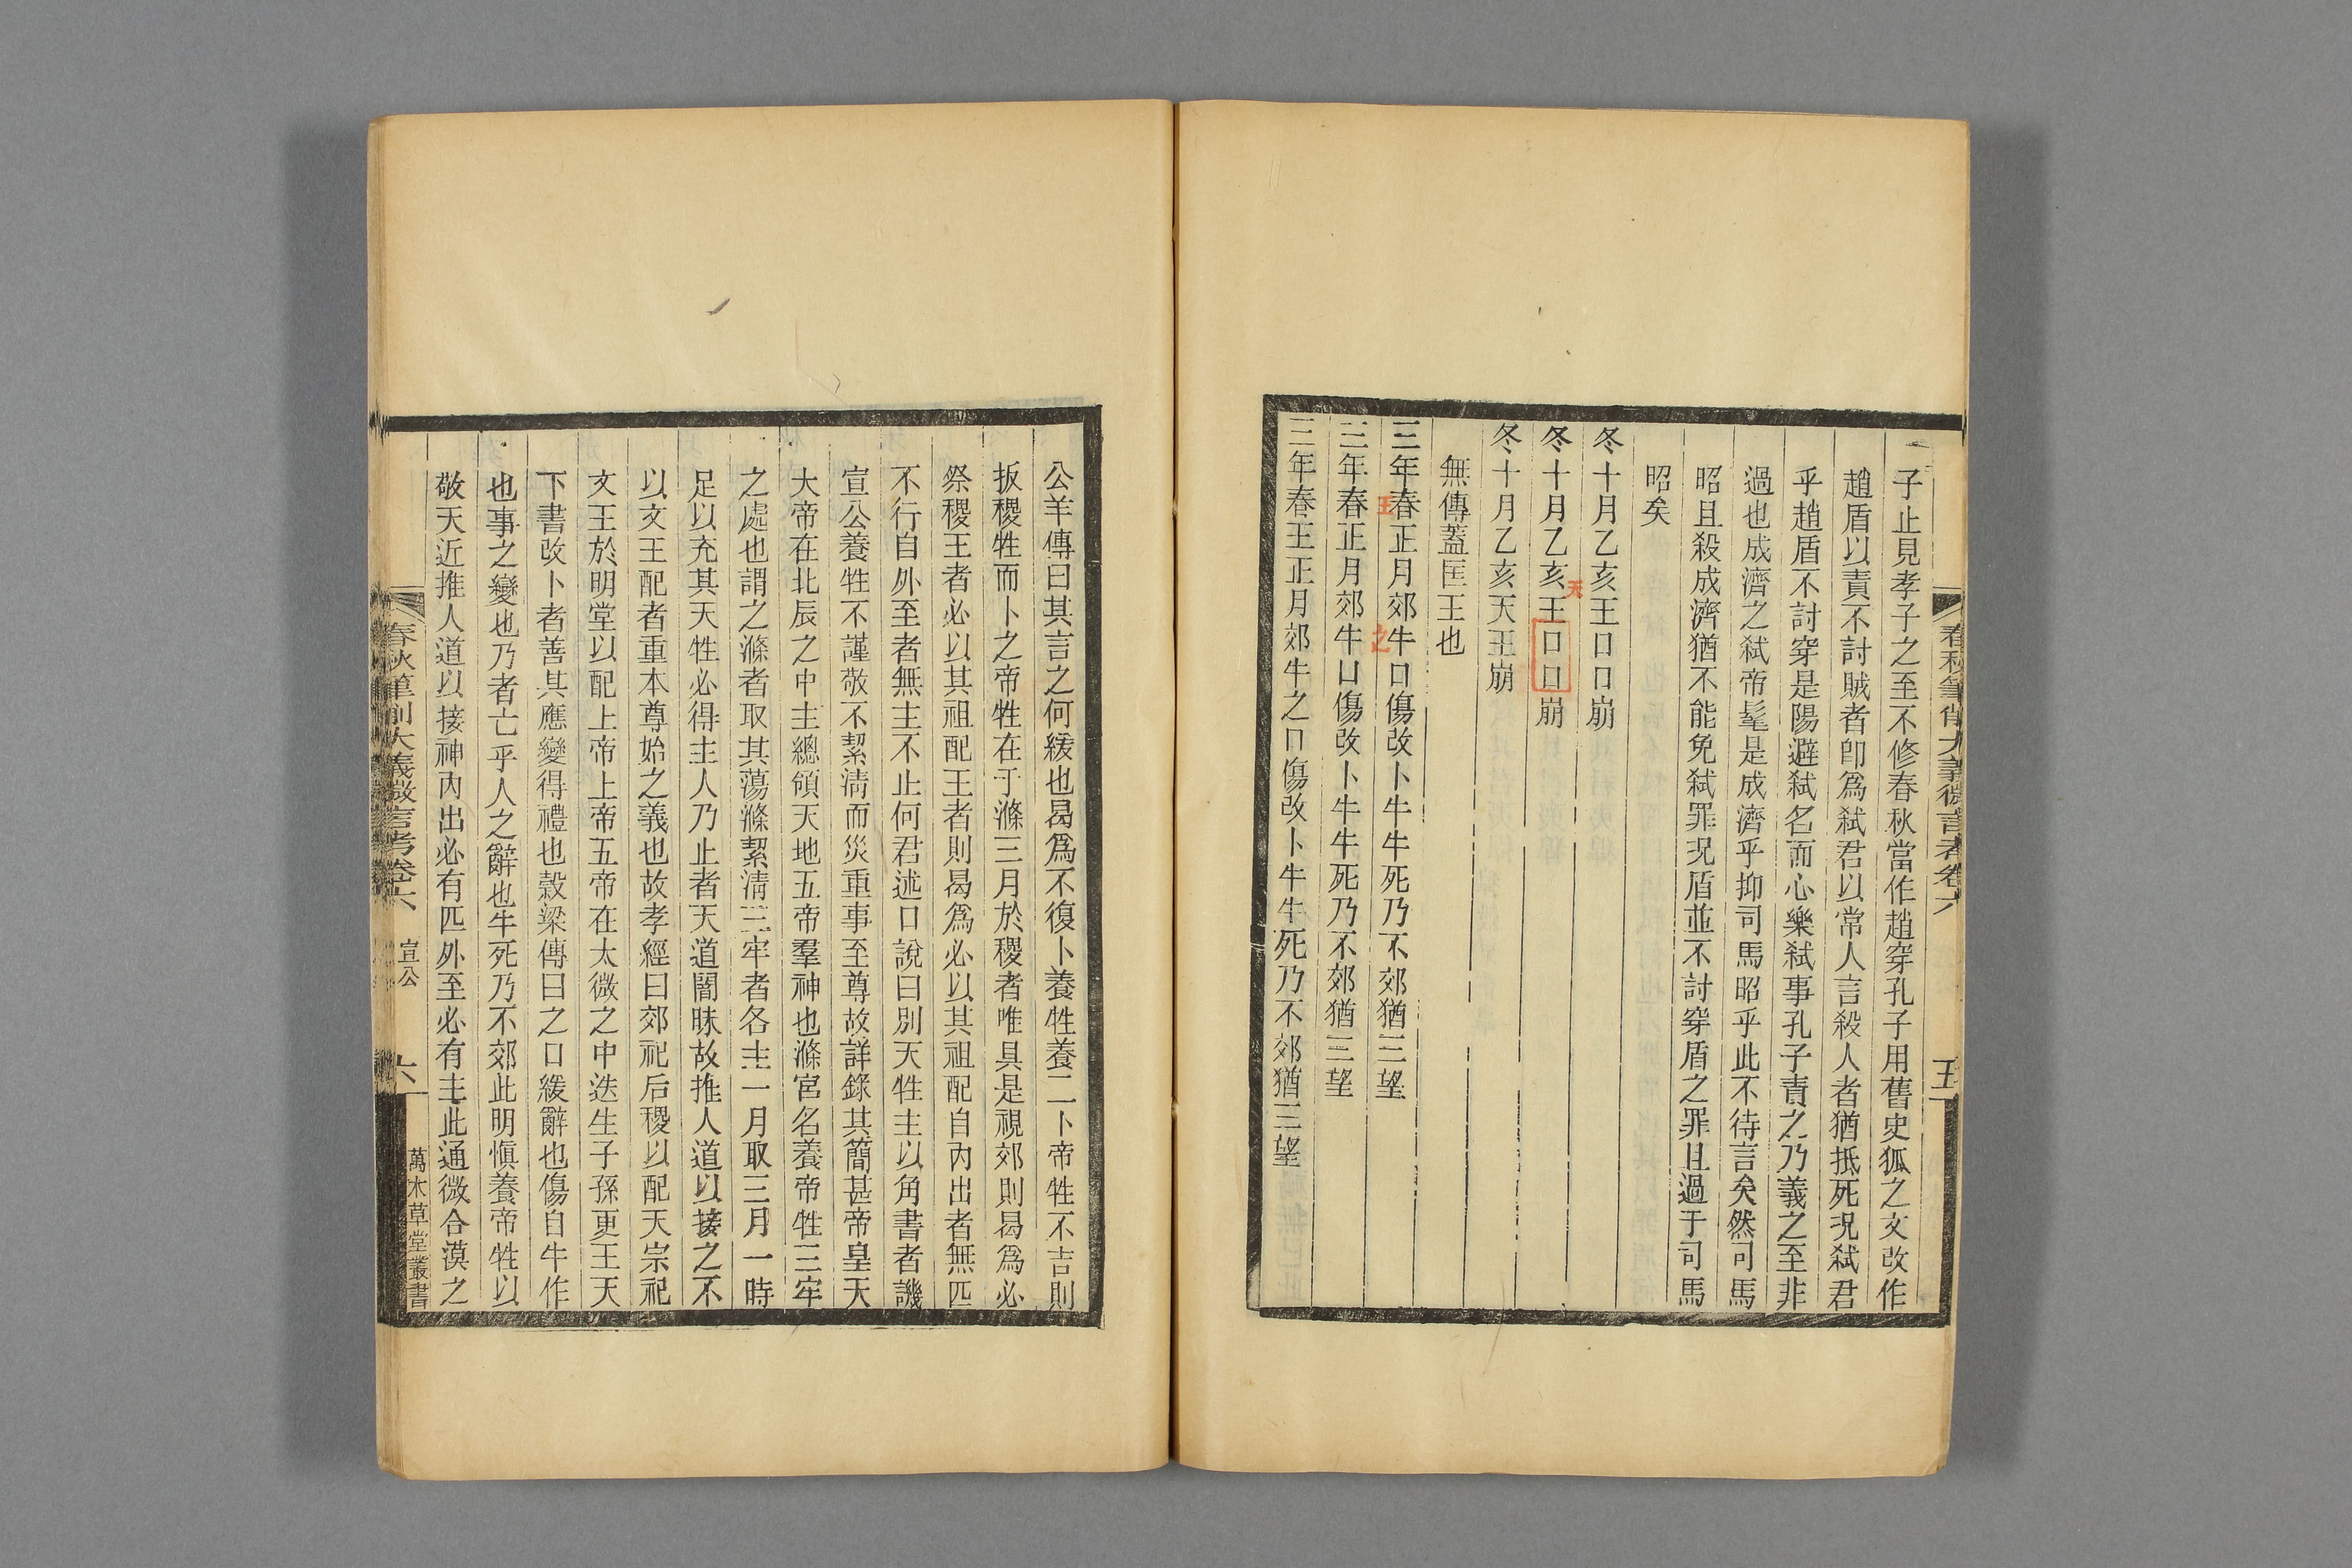 春秋筆削大義微言考卷六
五
子止見孝子之至不修春秋當作趙穿孔子用舊史狐之文改作
趙盾以責不討賊者卽爲弒君以常人言殺人者猶抵死況弒君
乎趙盾不討穿是陽避弒名而心樂弒事孔子責之乃義之至非
過也成濟之弒帝髦是成濟乎抑司馬昭乎此不待言矣然司馬
昭且殺成濟猶不能免弒罪況盾並不討穿盾之罪且過于司馬
昭矣
冬十月乙亥王口口崩
天
冬十月乙亥王口口崩
冬十月乙亥天王崩
無傳蓋匡王也
王
之
三年春正月郊牛口傷改卜牛牛死乃不郊猶三望
三年春正月郊牛口傷改卜牛牛死乃不郊猶三望
三年春王正月郊牛之口傷改卜牛牛死乃不郊猶三望
公羊傳曰其言之何緩也曷爲不復卜養牲養二卜帝牲不吉則
扳稷牲而卜之帝牲在于滌三月於稷者唯具是視郊則曷爲必
祭稷王者必以其祖配王者則曷爲必以其祖配自內出者無匹
不行自外至者無主不止何君述口說曰別天牲主以角書者譏
宣公養牲不謹敬不絜淸而災重事至尊故詳錄其簡甚帝皇天
大帝在北辰之中主總領天地五帝羣神也滌宮名養帝牲三牢
之處也謂之滌者取其蕩滌絜淸三牢者各主一月取三月一時
足以充其天牲必得主人乃止者天道闇昧故推人道以接之不
以文王配者重本尊始之義也故孝經曰郊祀后稷以配天宗祀
文王於明堂以配上帝上帝五帝在太微之中迭生子孫更王天
下書改卜者善其應變得禮也穀梁傳曰之口緩辭也傷自牛作
也事之變也乃者亡乎人之辭也牛死乃不郊此明愼養帝牲以
敬天近推人道以接神內出必有匹外至必有主此通微合漠之
春秋筆削大義微言考卷六
宣公
六
萬木草堂叢書